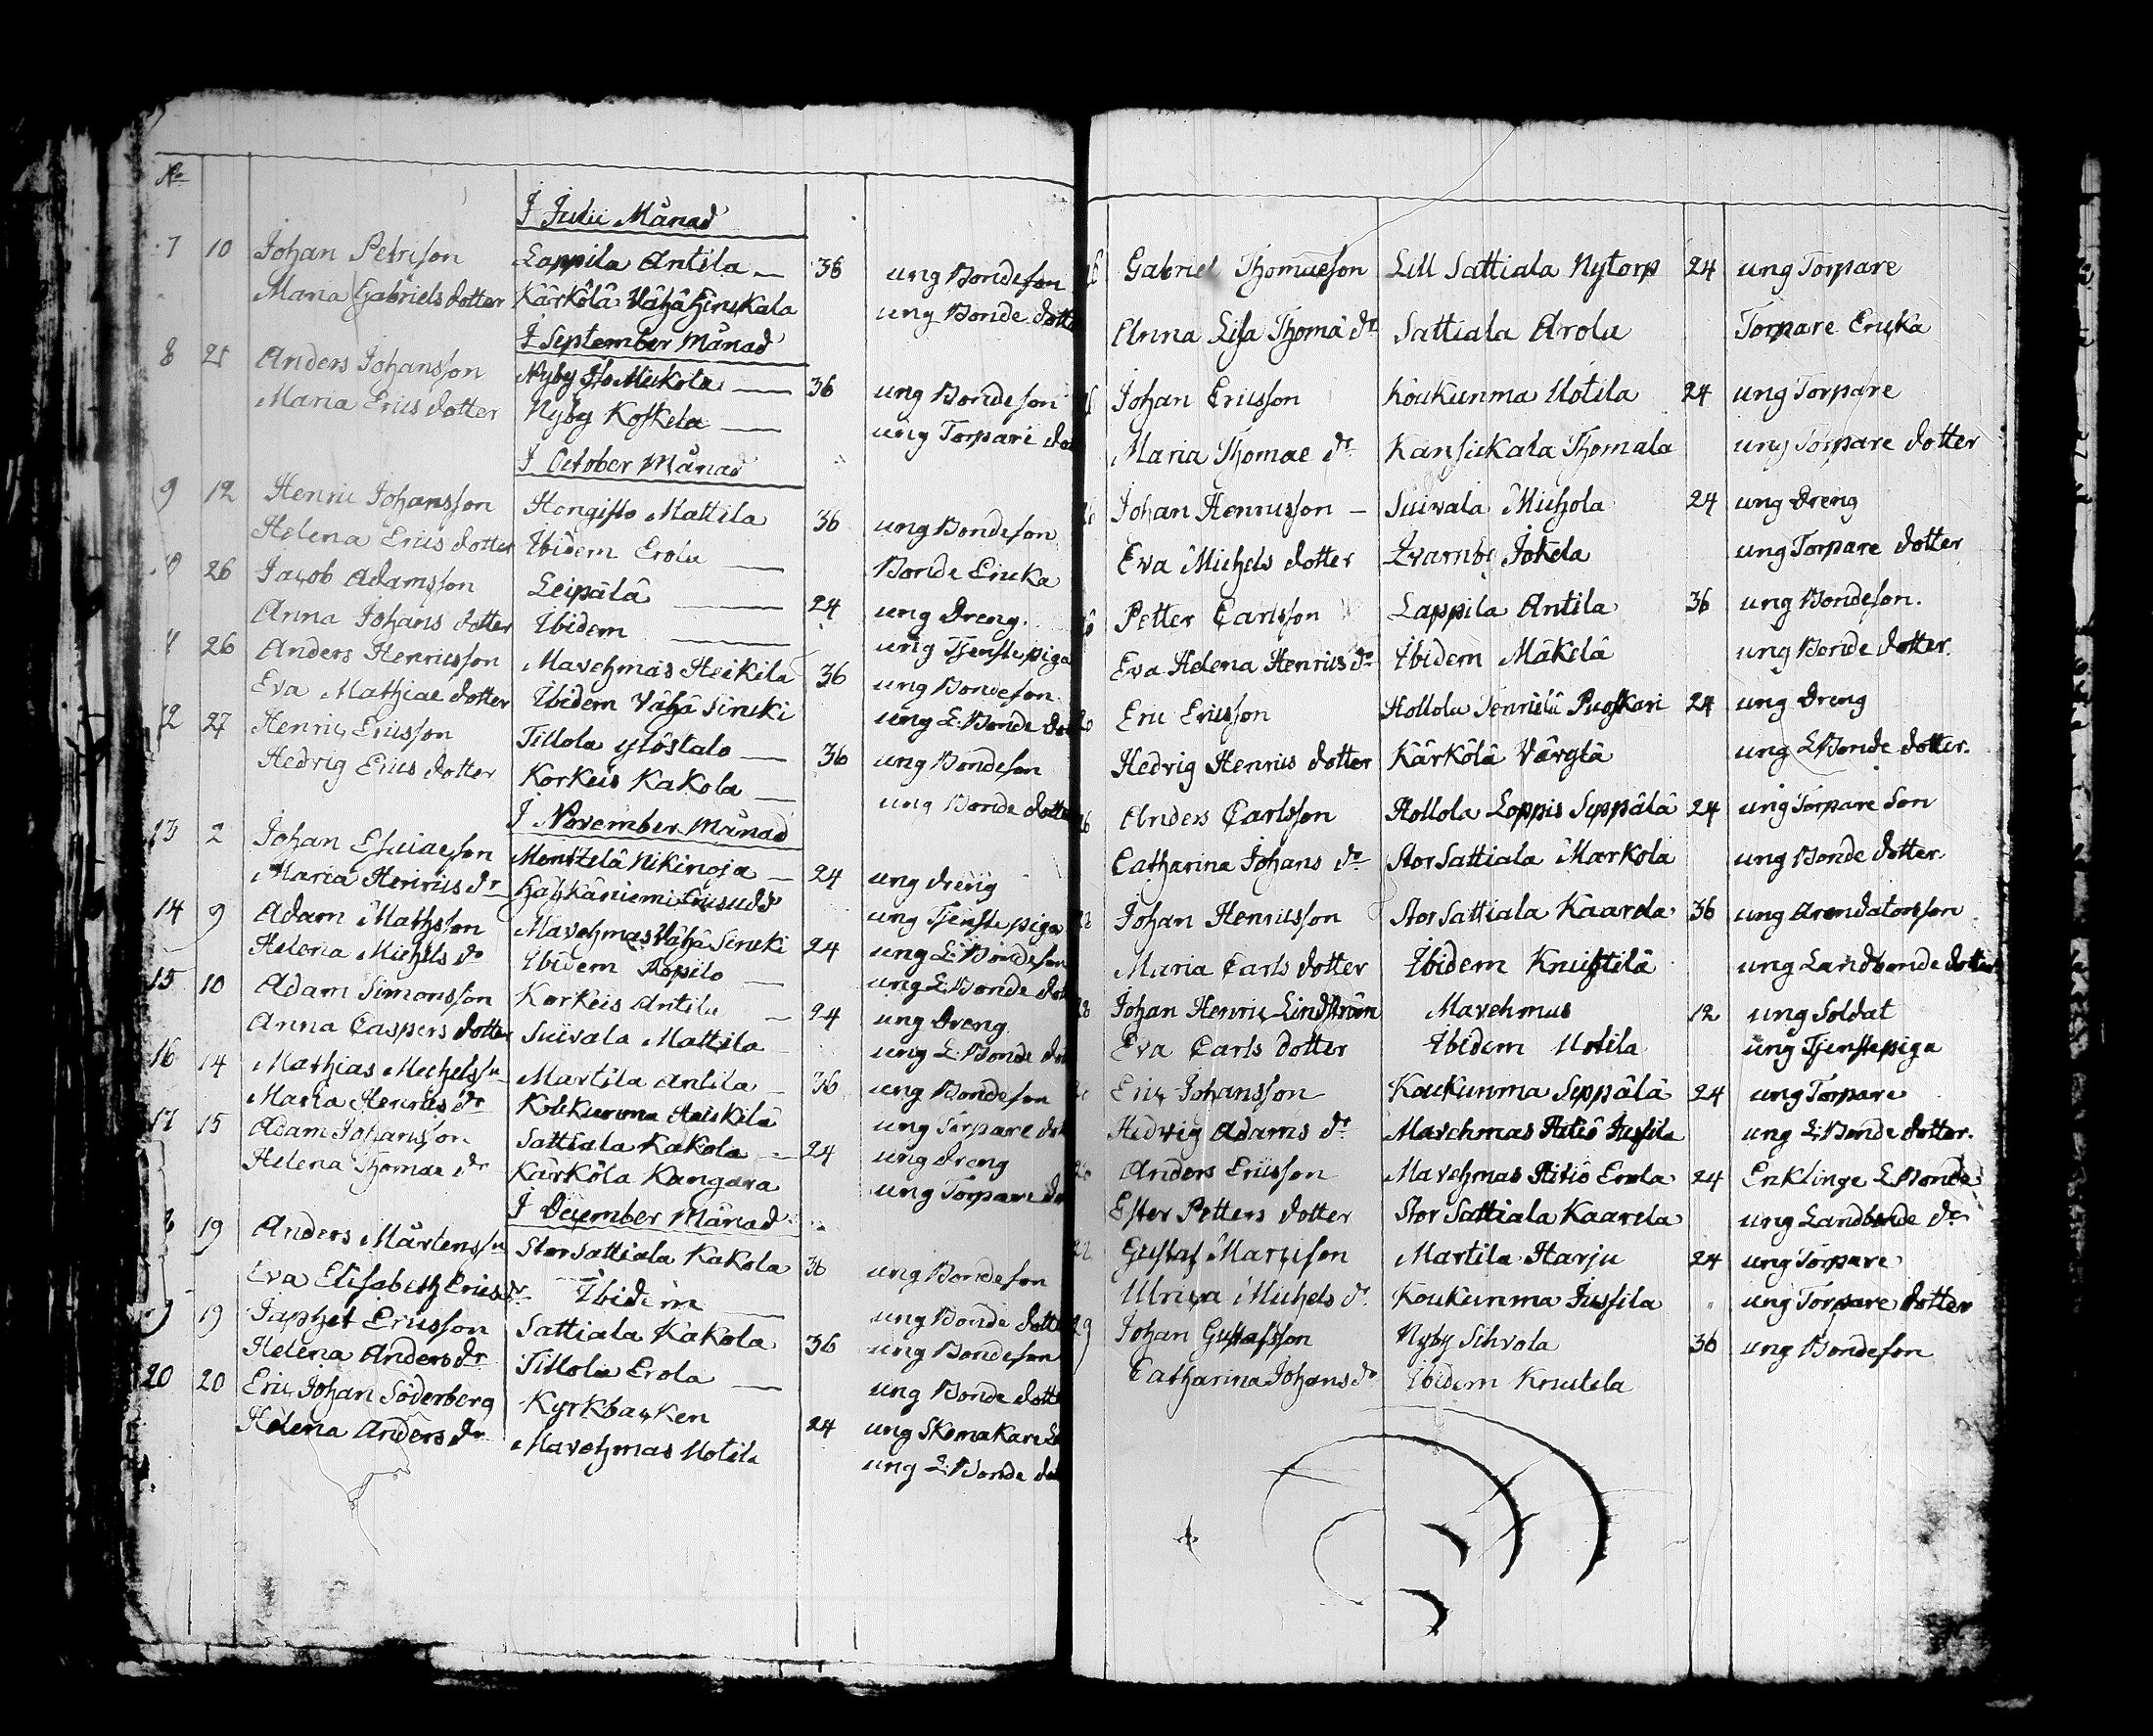 No
I Julii Månad
7 10 Johan Petrison Lappila Antila 36 ung Bondeson
Maria Gabriels dotter Kärkölä Vähä Hinskala ung Bonde dotte
I September Månad
8 21 Anders Johansson Nyby Iso Mickola 36 ung Bondeson
Maria Erics dotter Nyby Koskela ung Torpare dot
I October Månad
9 12 Henric Johansson Hongisto Mattila 36 ung Bondeson
Helena Erics dotter Ibidem Erola Bonde Encka
26 Jacob Adamsson Leipälä 24 ung Dreng.
Anna Johans dotter Ibidem ung Tjenstepiga
26 Anders Henricsson Mavehmas Heikilä 36 ung Bondeson
Eva Mathiae dotter Ibidem Vähä Sincki ung L: Bonde dot
12 27 Henric Ericsson Tillola Ylöstalo 36 ung Bondeson
Hedvig Erics dotter Korkeis Kakola ung Bonde dotte
I November Månad
13 2 Johan Esaiaeson Mentzelä Nikinoja 24 ung dreng
Maria Henrics dr ung Tjenstepiga
14 9 Adam Mathsson Mavehmas Vähä Sincki 24 ung L: Bondeson
Helena Michels dr Ibidem Ropilo ung L: Bonde dot
15 10 Adam Simonsson Korkeis Antila 24 ung Dreng
Anna Caspers dotter Suivala Mattila ung L: Bonde dot
16 14 Mathias Michelss:n Martila Antila 36 ung Bondeson
Maria Henrics dr Koukunma Heiskilä ung Torpare dot
17 15 Adam Johansson Sattiala Kakola 24 ung dreng
Helena Thomae dr Kärkölä Kangara ung Torpare do
I December Månad
19 Anders Mårtenss:n Stor Sattiala Kakola 36 ung Bondeson
Eva Elisabeth Erics dr Ibidem ung Bonde dotte
19 Japhet Ericsson Sattiala Kakola 36 ung Bondeson
Helena Anders dr Tillola Erola ung Bonde dotte
20 20 Eric Johan Söderberg Kyrkbacken 24 ung Skomakare
Helena Anders dr Mavehmas Uotila ung L: Bonde do
Gabriel Thomaeson Lill Sattiala Nytorp 24 ung Torpare
Anna Lisa Thomä dr Sattiala Arola Torpare Encka
Johan Ericsson Koukunma Uotila 24 ung Torpare
Maria Thomae dr Kansickala Thomala ung Torpare dotter
Johan Henricsson Suivala Michola 24 ung Dreng
Eva Michels dotter Qvarnby Jokela ung Torpare dotter
Petter Carlsson Lappila Antila 36 ung Bondeson.
Eva Helena Henrics dr Ibidem Mäkelä ung Bonde dotter.
Eric Ericsson Hollola Tennilä Puoskari 24 ung Dreng
Hedvig Henrics dotter Kärkölä Värglä ung L Bonde dotter.
Anders Carlsson Hollola Loppis Seppälä 24 ung Torpare Son
Catharina Johans dr Stor Sattiala Markola ung Bonde dotter
Johan Henricsson Stor Sattiala Kaarela 36 ung Arendatorsson
Maria Carls dotter Ibidem Knuftilä ung Landbonde dotter
Johan Henric Lindström Mavehmas 12 ung Soldat
Eva Carls dotter Ibidem Uotila ung Tjenstepiga
Eric Johansson Koukunma Seppälä 24 ung Torpare
Hedvig Adams dr Mavehmas Hitiö Jussila ung L: Bonde dotter.
Anders Ericsson Mavehmas Hitiö Erola 24 Enklinge L Bonde
Ester Petters dotter Stor Sattiala Kaarela ung Landbonde dr
22 Gustaf Marcison Martila Harju 24 ung Torpare
Ulrica Michels dr. Koukunma Jussila ung Torpare dotter
29 Johan Gustafsson Nyby Sihvola 36 ung Bondeson
Catharina Johans dr Ibidem Knutila